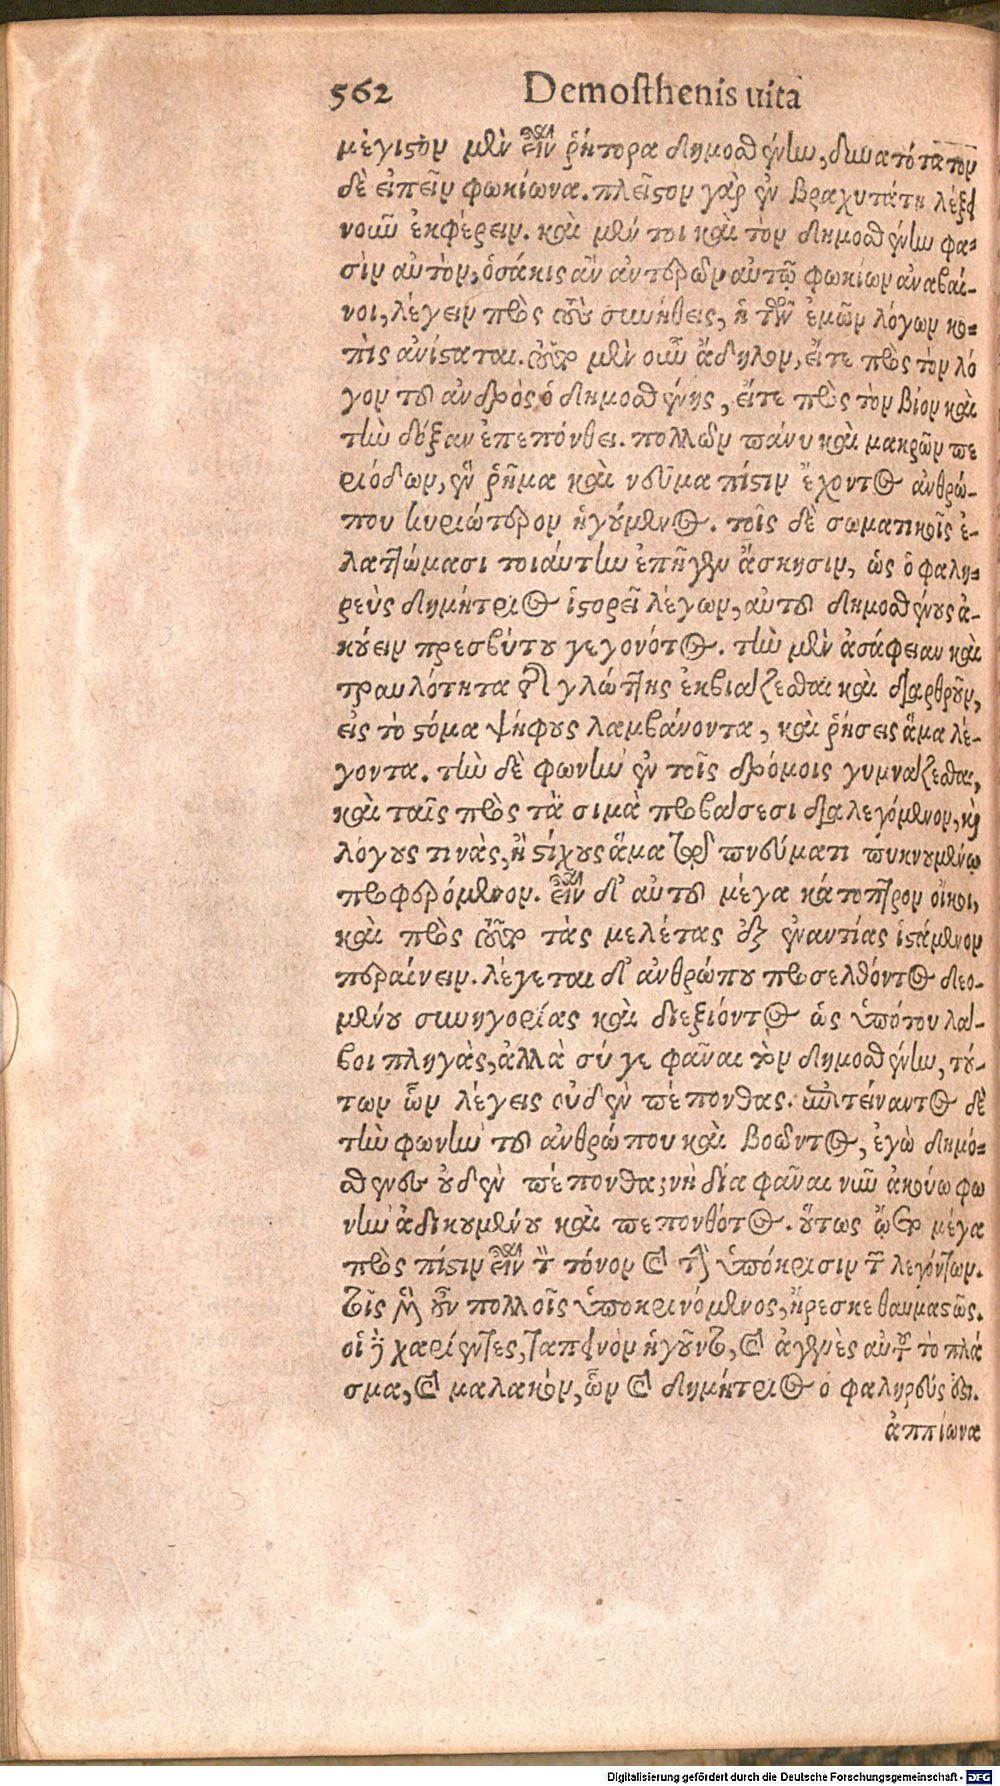 562 Demosthenis uita
μέγιστον μὲν εἶναι ῥήτορα δημοσθένην, δυνατότατον
δὲ εἰπεῖν φωκίωνα. πλεῖστον γὰρ ἐν βραχυτάτῃ λέξει
νοῦν ἐκφέρειν. καὶ μέν τοι καὶ τὸν δημοσθένην φα-
σὶν αὐτὸν, ὁσάκις ἂν ἀντερῶν αὐτῷ φωκίων ἀναβαί-
νοι, λέγειν πρὸς τοὺς συνήθεις, ἡ τῶν ἐμῶν λόγων κο-
πὶς ἀνίσταται. τοῦτο μὲν οὖν ἄδηλον, εἴτε πρὸς τὸν λό
γον τοῦ ἀνδρὸς ὁ δημοσθένης, εἴτε πρὸς τὸν βίον καὶ
τὴν δόξαν ἐπεπόνθει. πολλῶν πάνυ καὶ μακρῶν πε
ριόδων, ἓν ῥῆμα καὶ νεῦμα πίστιν ἔχοντος ἀνθρώ-
που κυριώτερον ἡγούμενος. τοῖς δὲ σωματικοῖς ἐ-
λαττώμασι τοιάυτην ἐπῆγεν ἄσκησιν, ὡς ὁ φαλη-
ρεὺς δημήτριος ἱστορεῖ λέγων, αὐτοῦ δημοσθένους ἀ-
κούειν πρεσβύτου γεγονότος. τὴν μὲν ἀσάφειαν καὶ
τραυλότητα τῆς γλώττης ἐκβιάζεσθαι καὶ διαρθροῦν,
εἰς τὸ στόμα ψήφους λαμβάνοντα, καὶ ῥήσεις ἅμα λέ-
γοντα. τὴν δὲ φωνὴν ἐν τοῖς δρόμοις γυμνάζεσθαι,
καὶ ταῖς πρὸς τὰ σιμὰ προβάσεσι διαλεγόμενον, καὶ
λόγους τινὰς, ἢ στίχους ἅμα τῷ πνεύματι πυκνουμένῳ
προφερόμενον. εἶναι δ' αὐτοῦ μέγα κάτοπτρον οἴκοι,
καὶ πρὸς τοῦτο τὰς μελέτας ἐξ ἐναντίας ἱστάμενον
περαίνειν. λέγεται δ' ἀνθρώπου προσελθόντος δεο-
μένου συνηγορίας καὶ διεξιόντος ὡς ὑπό του λά-
βοι πληγὰς, ἀλλὰ σύ γε φᾶναι τὸν δημοσθένην, τού-
των ὧν λέγεις οὐδὲν πέπονθας. ἐπιτείναντος δὲ
τὴν φωνὴν τοῦ ἀνθρώπου καὶ βοῶντος, ἐγὼ δημό-
σθενες οὐδὲν πέπονθα; νὴ δία φᾶναι νῦν ἀκούω φω
νὴν ἀδικουμένου καὶ πεπονθότος. οὕτως ᾤετο μέγα
πρὸς πίστιν εἶναι τὸν τόνον καὶ τὴν ὑπόκρισιν τῶν λεγόντων.
τοῖς μὲν οὖν πολλοῖς ὑποκρινόμενος, ἤρεσκε θαυμαστῶς.
οἱ δὲ χαρίεντες, ταπεινὸν ἡγοῦντο, καὶ ἀγεννὲς αὐτοῦ τὸ πλά
σμα, καὶ μαλακὸν, ὧν καὶ δημήτριος ὁ φαληρεύς ἐστι.
ἀππίωνα
Digitalisierung gefördert durch die Deutsche Forschungsgemeinschaft - DFG